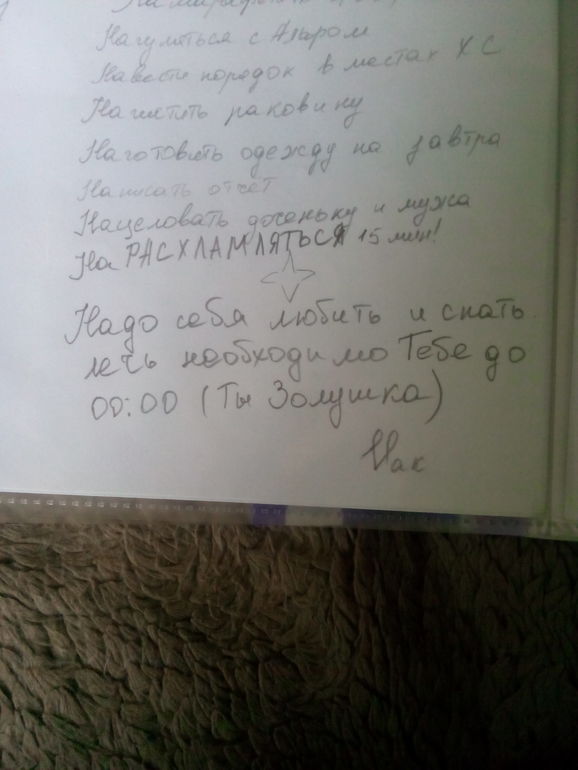 Нагуляться с Азаром
Навести порядок в местах ХС
Начистить раковину
Наготовить одежду на завтра
Написать отчет
Нацеловать доченьку и мужа
На РАСХЛАМЛЯТЬСЯ 15 мин!
Надо себя любить и спать
лечь необходимо Тебе до
00:00 (Ты Золушка)